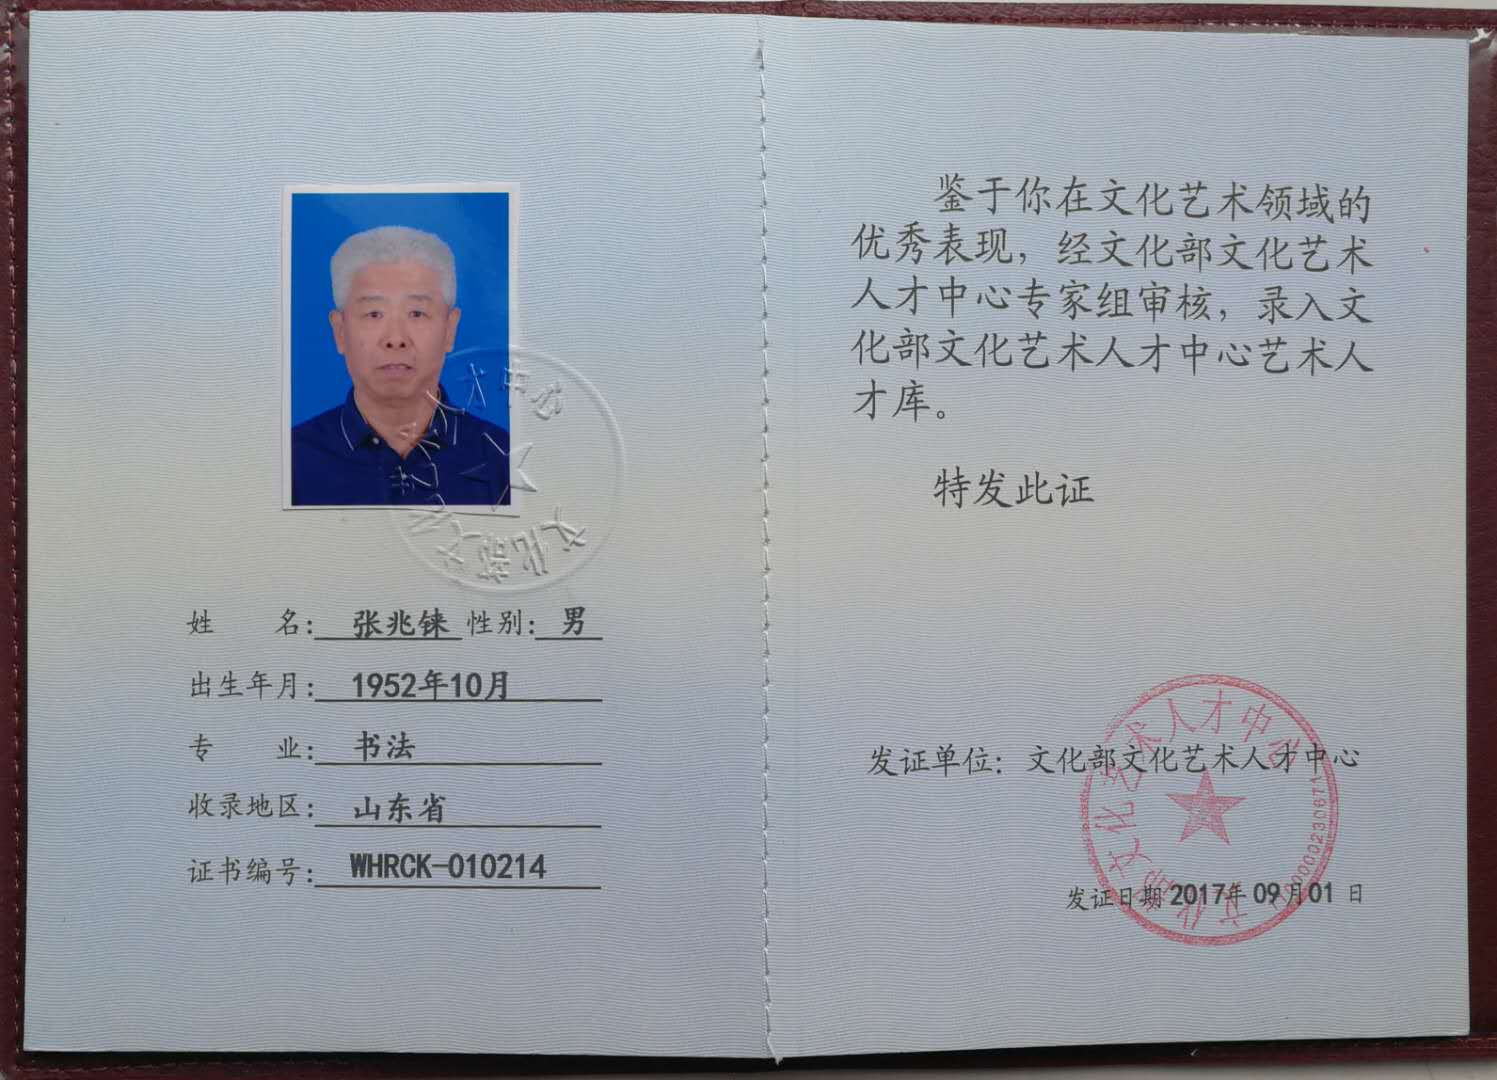 姓名：张兆铼 性别：男
出生年月：1952年10月
专业：书法
收录地区：山东省
证书编号：WHRCK-010214
文化部文化艺术人才中心
鉴于你在文化艺术领域的
优秀表现，经文化部文化艺术
人才中心专家组审核，录入文
化部文化艺术人才中心艺术人
才库。
特发此证
发证单位：文化部文化艺术人才中心
发证日期 2017年 09月01 日
文化部文化艺术人才中心